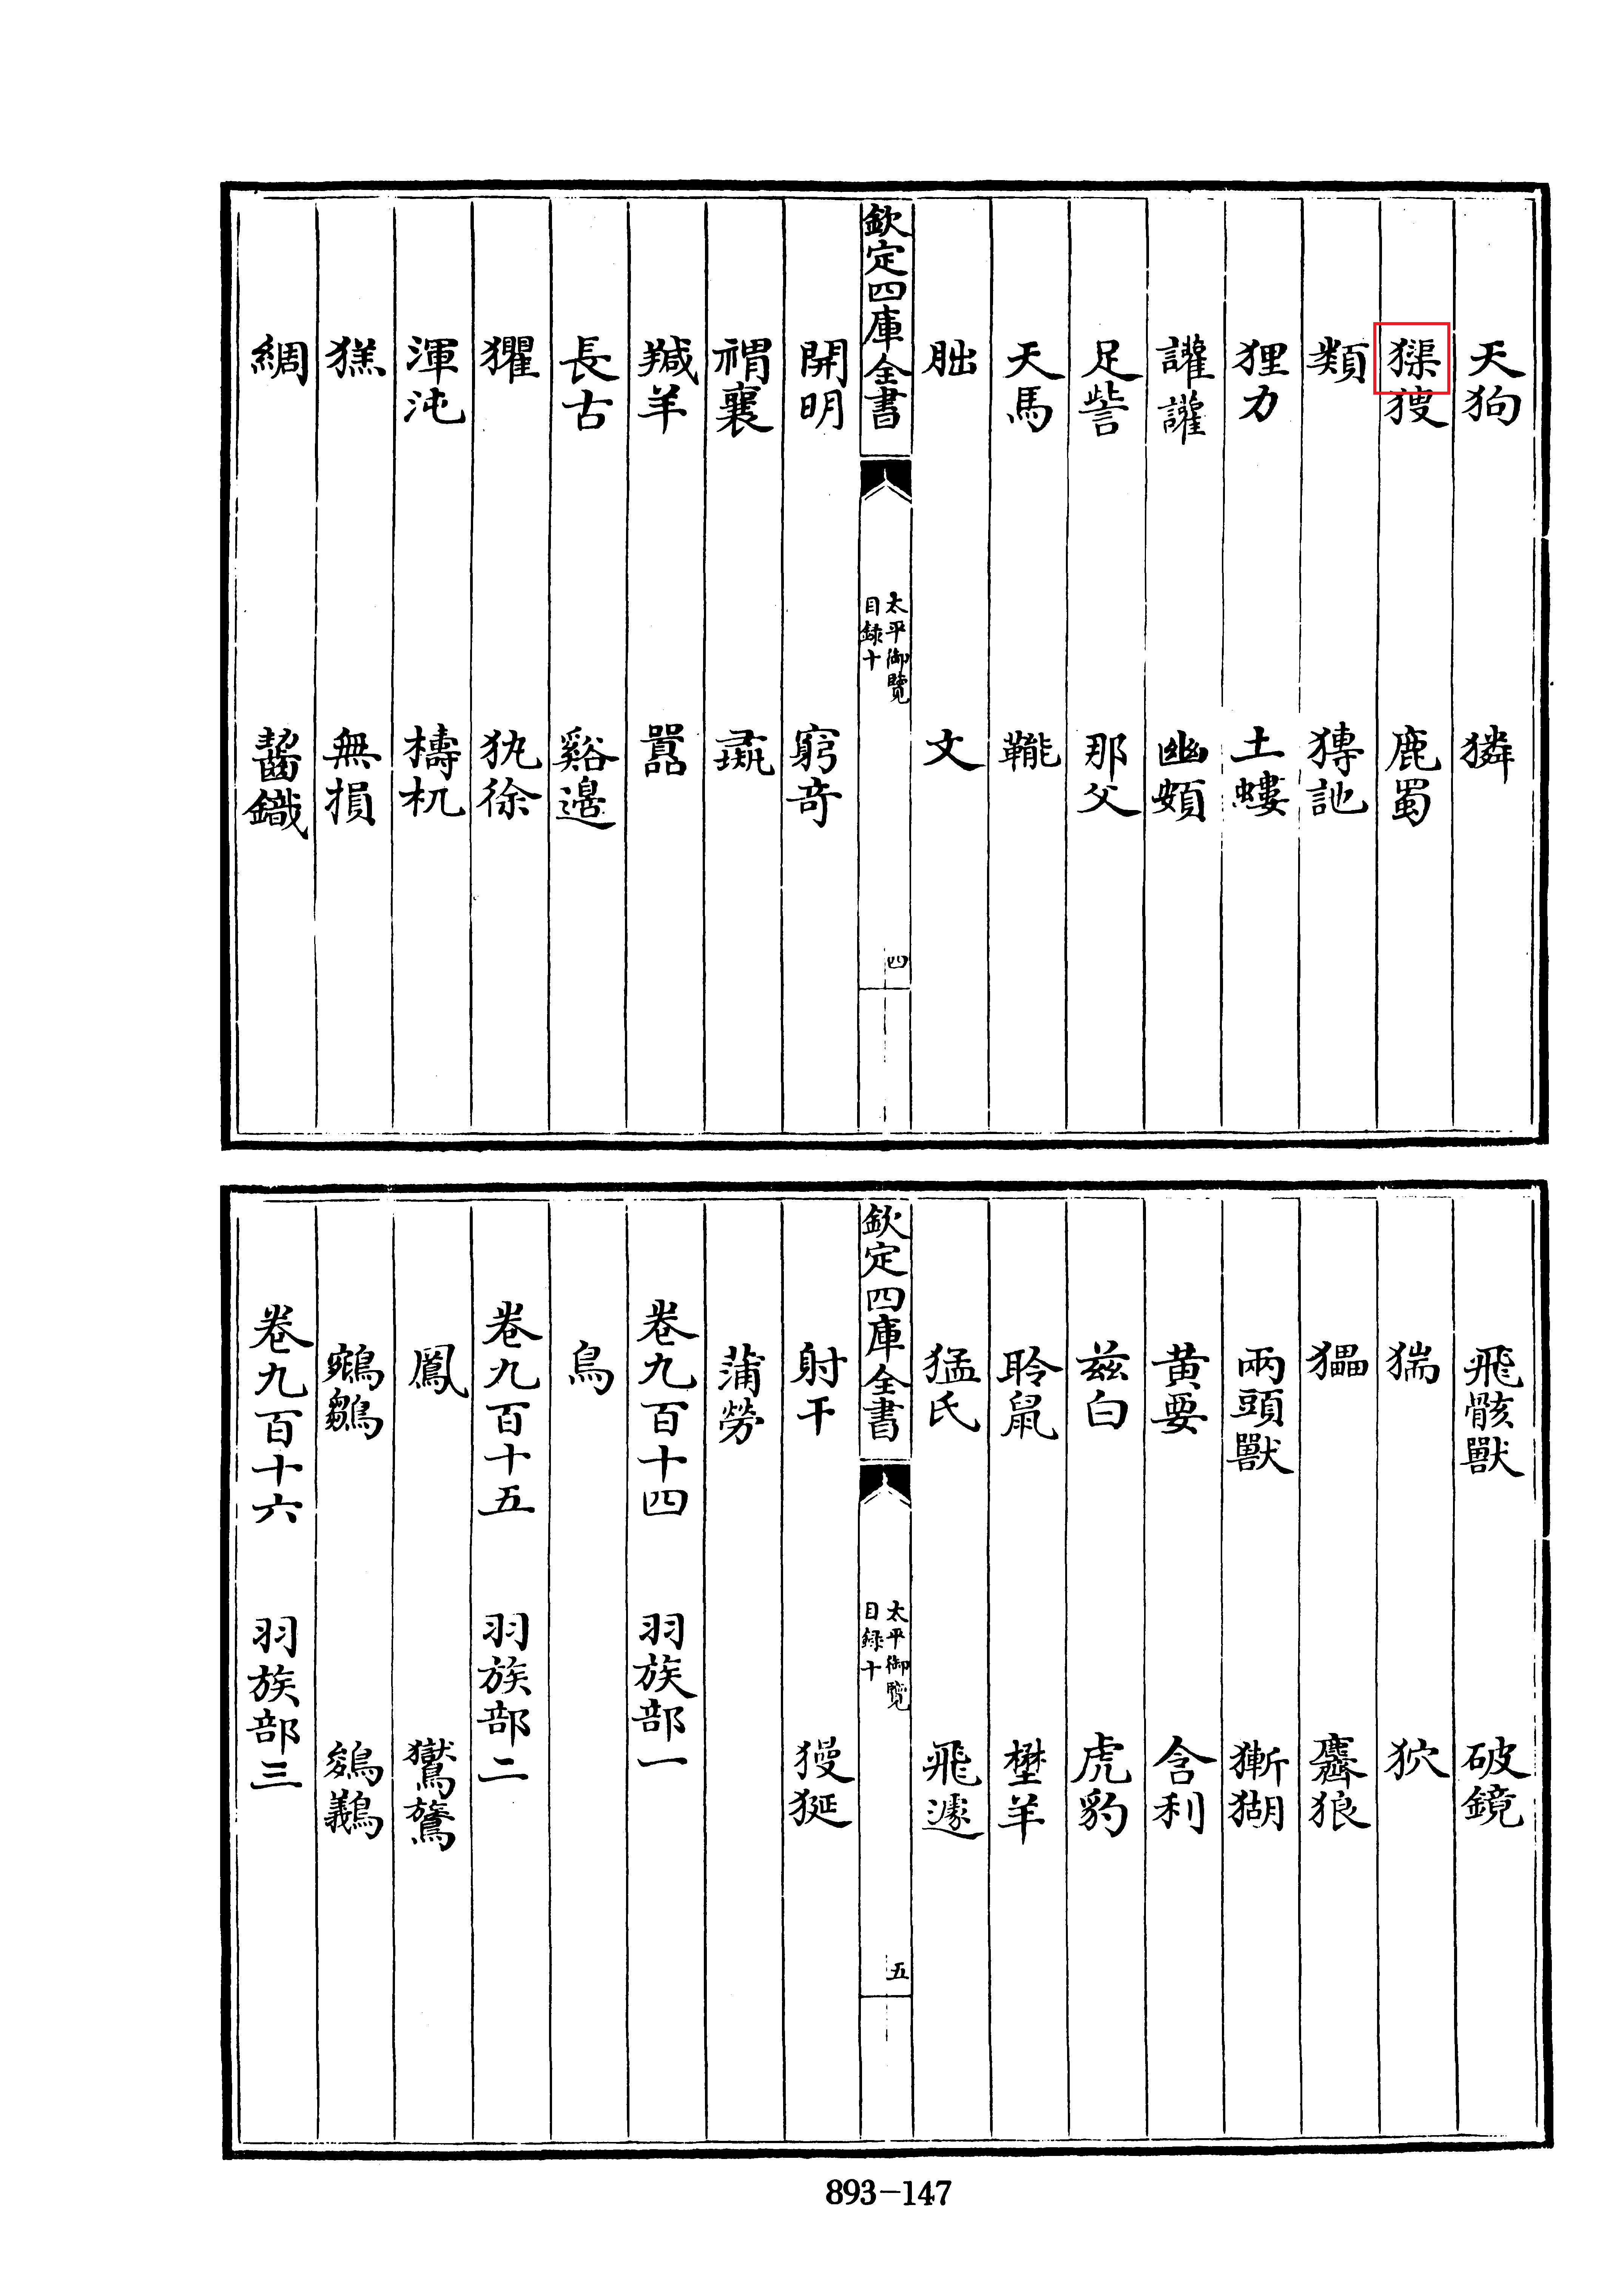 天狗　獜
㹱獀　鹿蜀
類　猼訑
狸力　土螻
讙讙　幽頞
足訾　那父
天馬
朏　文
欽定四庫全書
太平御覽
目録十
四
開明　窮奇
襄
羬羊　嚻
長古　谿邊
玃　犰徐
渾沌　檮杌
無損
綢　齧
飛骸獸　破鏡
猯　狖
麡狼
兩頭獸　獑猢
黄要　含利
兹白　虎豹
聆鼠　壄羊
猛氏　飛遽
欽定四庫全書
太平御覽
目録十
五
射干　獌狿
蒲勞
卷九百十四　羽族部一
鳥
卷九百十五　羽族部二
鳳　鸑鷟
鵷鶵　鵔鸃
卷九百十六　羽族部三
893-147